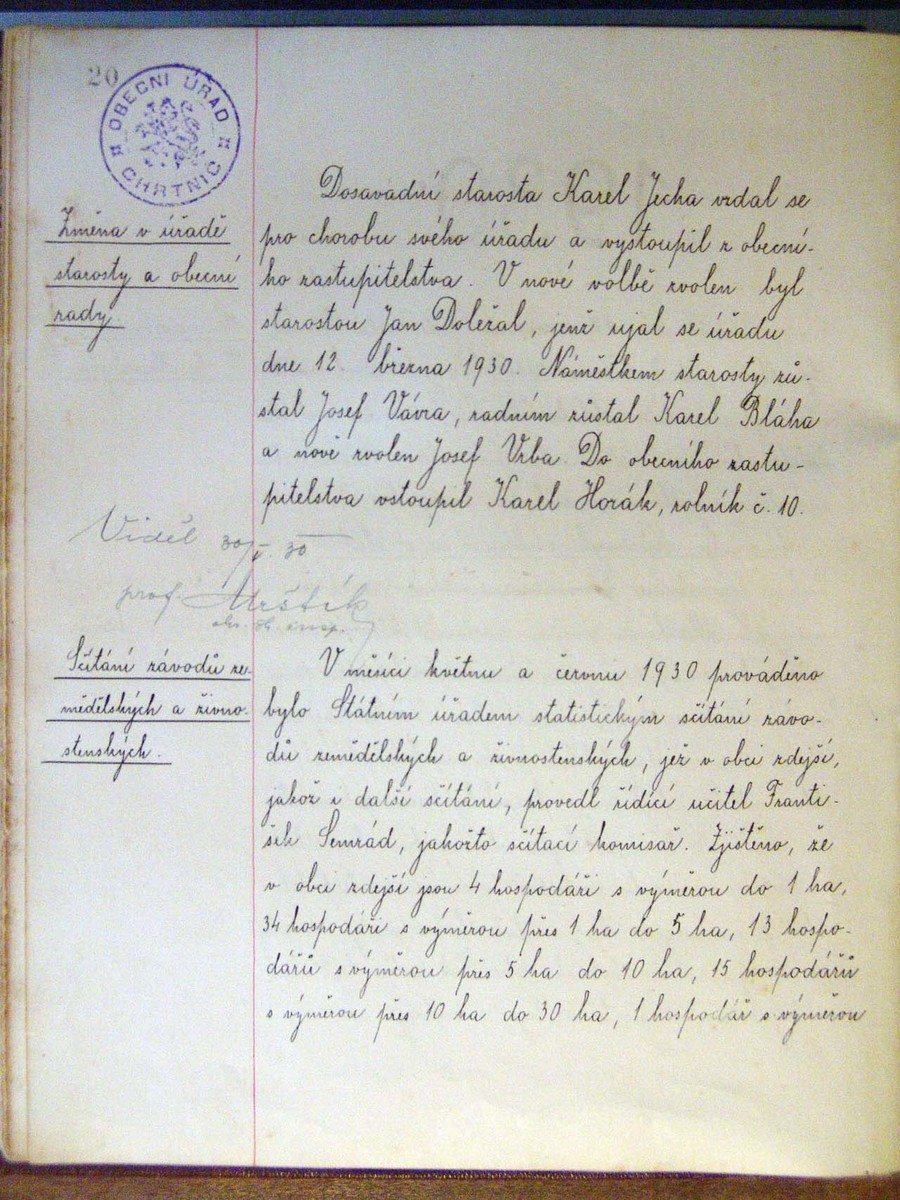 20
OBECNÍ ÚŘAD
CHRTNIC
Změna v úřadě
starosty a obecní
rady.
Dosavadní starosta Karel Jecha vzdal se
pro chorobu svého úřadu a vystoupil z obecní-
ho zastupitelstva. V nové volbě zvolen byl
starostou Jan Doležal, jenž ujal se úřadu
dne 12. března 1930. Náměstkem starosty zů-
stal Josef Vávra, radním zůstal Karel Bláha
a nově zvolen Josef Vrba. Do obecního zastu-
pitelstva vstoupil Karel Horák, rolník č. 10.
Viděl 30/V. 30
prof. Mrštík
insp.
Sčítání závodů ze-
mědělských a živno-
stenských.
V měsíci květnu a červnu 1930 prováděno
bylo Státním úřadem statistickým sčítání závo-
dů zemědělských a živnostenských, jež v obci zdejší,
jakož i další sčítání, provedl řídící učitel Franti-
šek Semrád, jakožto sčítací komisař. Zjištěno, že
v obci zdejší jsou 4 hospodáři s výměrou do 1 ha,
34 hospodáři s výměrou přes 1 ha do 5 ha, 13 hospo-
dářů s výměrou přes 5 ha do 10 ha, 15 hospodářů
s výměrou přes 10 ha do 30 ha, 1 hospodář s výměrou